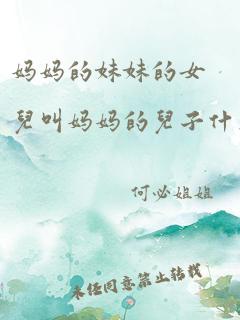 妈妈的妹妹的女
兒叫妈妈的兒子什
何必姐姐
未经同意禁止转载